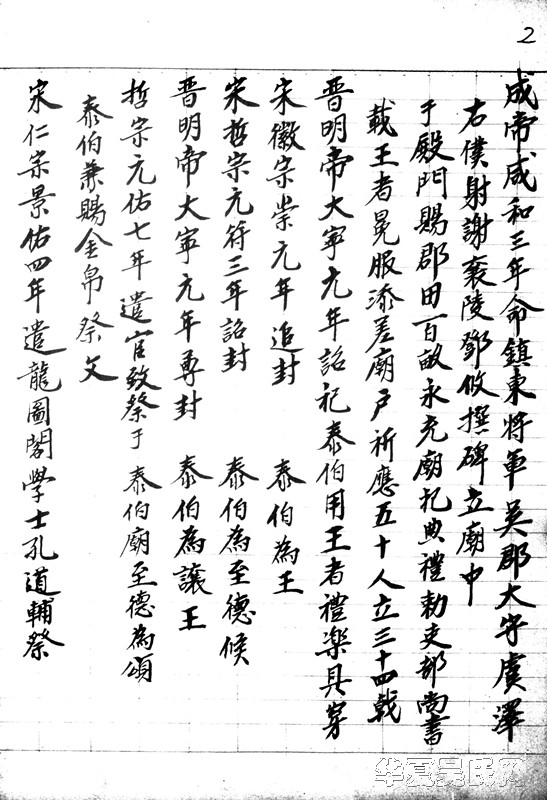 2
成帝咸和三年命鎮東将軍吳郡大守虞澤
右僕射謝襄陵鄧攸撰碑立廟中
于殿門賜郡田一百畝永充廟祀典禮勅吏部尚書
載王者冕服添差廟戶祈應五十人立三十四戟
晋明帝大寧元年詔祀泰伯用王者禮楽具穿
宋徽宗崇元年追封 泰伯為王
宋哲宗元符三年詔封 泰伯為至德候
晋明帝大寧元年尊封 泰伯為讓王
哲宗元佑七年遣官致祭于 泰伯廟至德為頌
泰伯兼賜金帛祭文
宋仁宗景佑四年遣龍圖閣學士孔道輔祭
华夏吴氏网